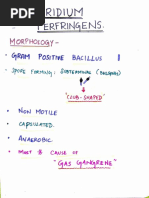 RIDIUM
PERFRINGENS.
MORPHOLOGY-
• GRAM POSITIVE BACILLUS
• SPORE FORMING: SUBTERMINAL
"CLUB-SHAPED"
• NON MOTILE
• CAPSULATED.
• ANAEROBIC.
• MOST CAUSE OF
"GAS GANGRENE"